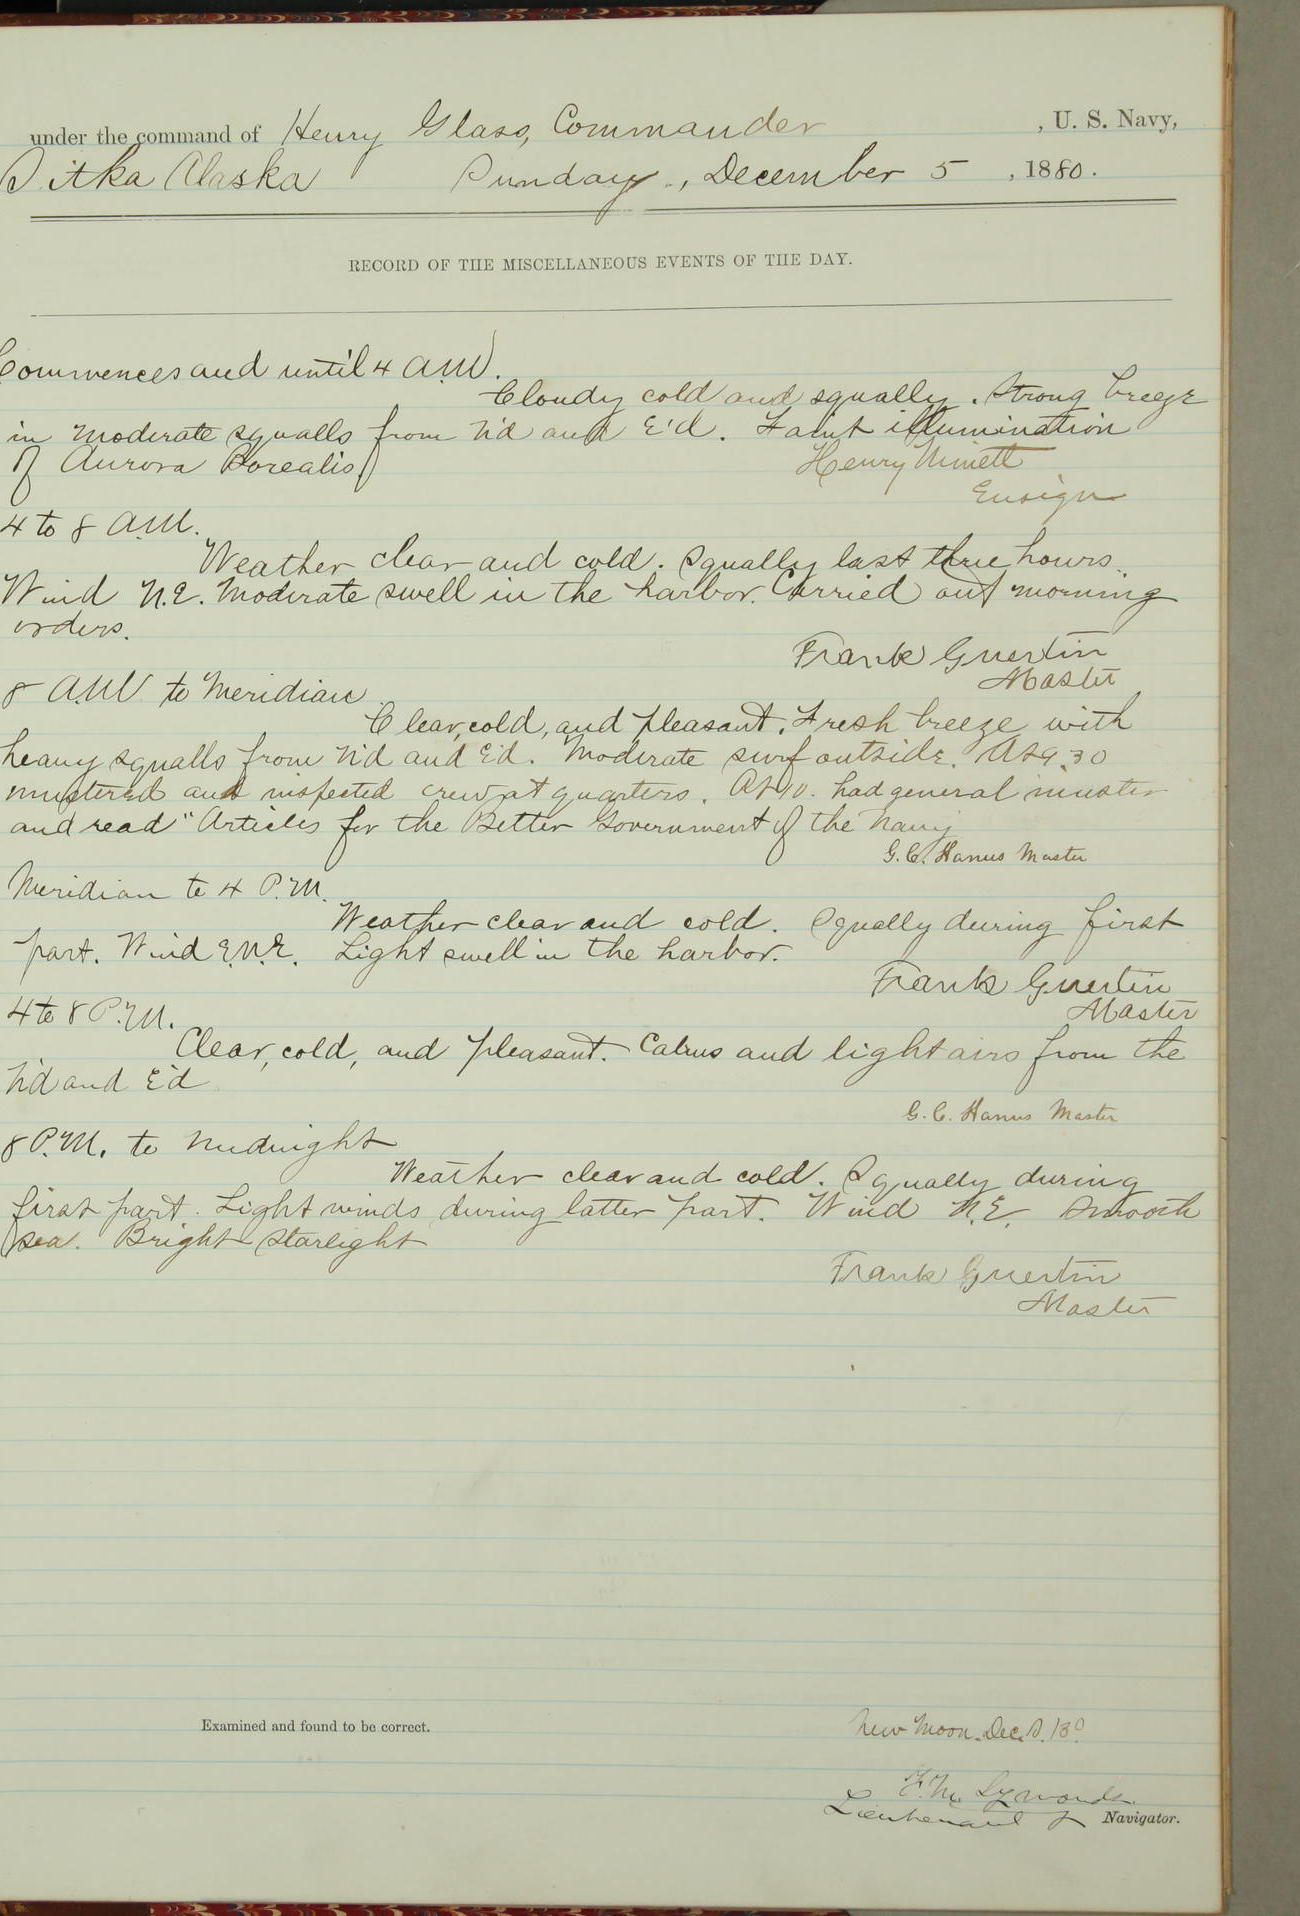 under the command of Henry Glass, Commander, U. S. Navy,
Sitka Alaska Sunday, December 5, 1880.
RECORD OF THE MISCELLANEOUS EVENTS OF THE DAY.
Commences and until 4 A.M.
Cloudy cold and squally. Strong breeze
in moderate squalls from N'd and E'd. Faint illumination
of Aurora Borealis
Henry Minett
Ensign
4 to 8 A.M.
Weather clear and cold. Squally last three hours.
Wind N.E. Moderate swell in the harbor. Carried out morning
orders.
Frank Guertin
Master
8 A.M. to Meridian
Clear, cold, and pleasant. Fresh breeze with
heavy squalls from N'd and E'd. Moderate surf outside. At 9.30
mustered and inspected crew at quarters. At 10. had general muster
and read "Articles for the Better Government of the Navy
G. C. Hanus Master
Meridian to 4 P.M.
Weather clear and cold. Squally during first
part. Wind E.N.E. Light swell in the harbor.
Frank Guertin
Master
4 to 8 P.M.
Clear, cold, and pleasant. Calms and light airs from the
N'd and E'd
G. C. Hanus Master
8 P.M. to Midnight
Weather clear and cold. Squally during
first part. Light winds during latter part. Wind N.E. Smooth
sea. Bright starlight
Frank Guertin
Master
Examined and found to be correct.
New Moon. Dec.
F. M. Symonds
Lieutenant & Navigator.